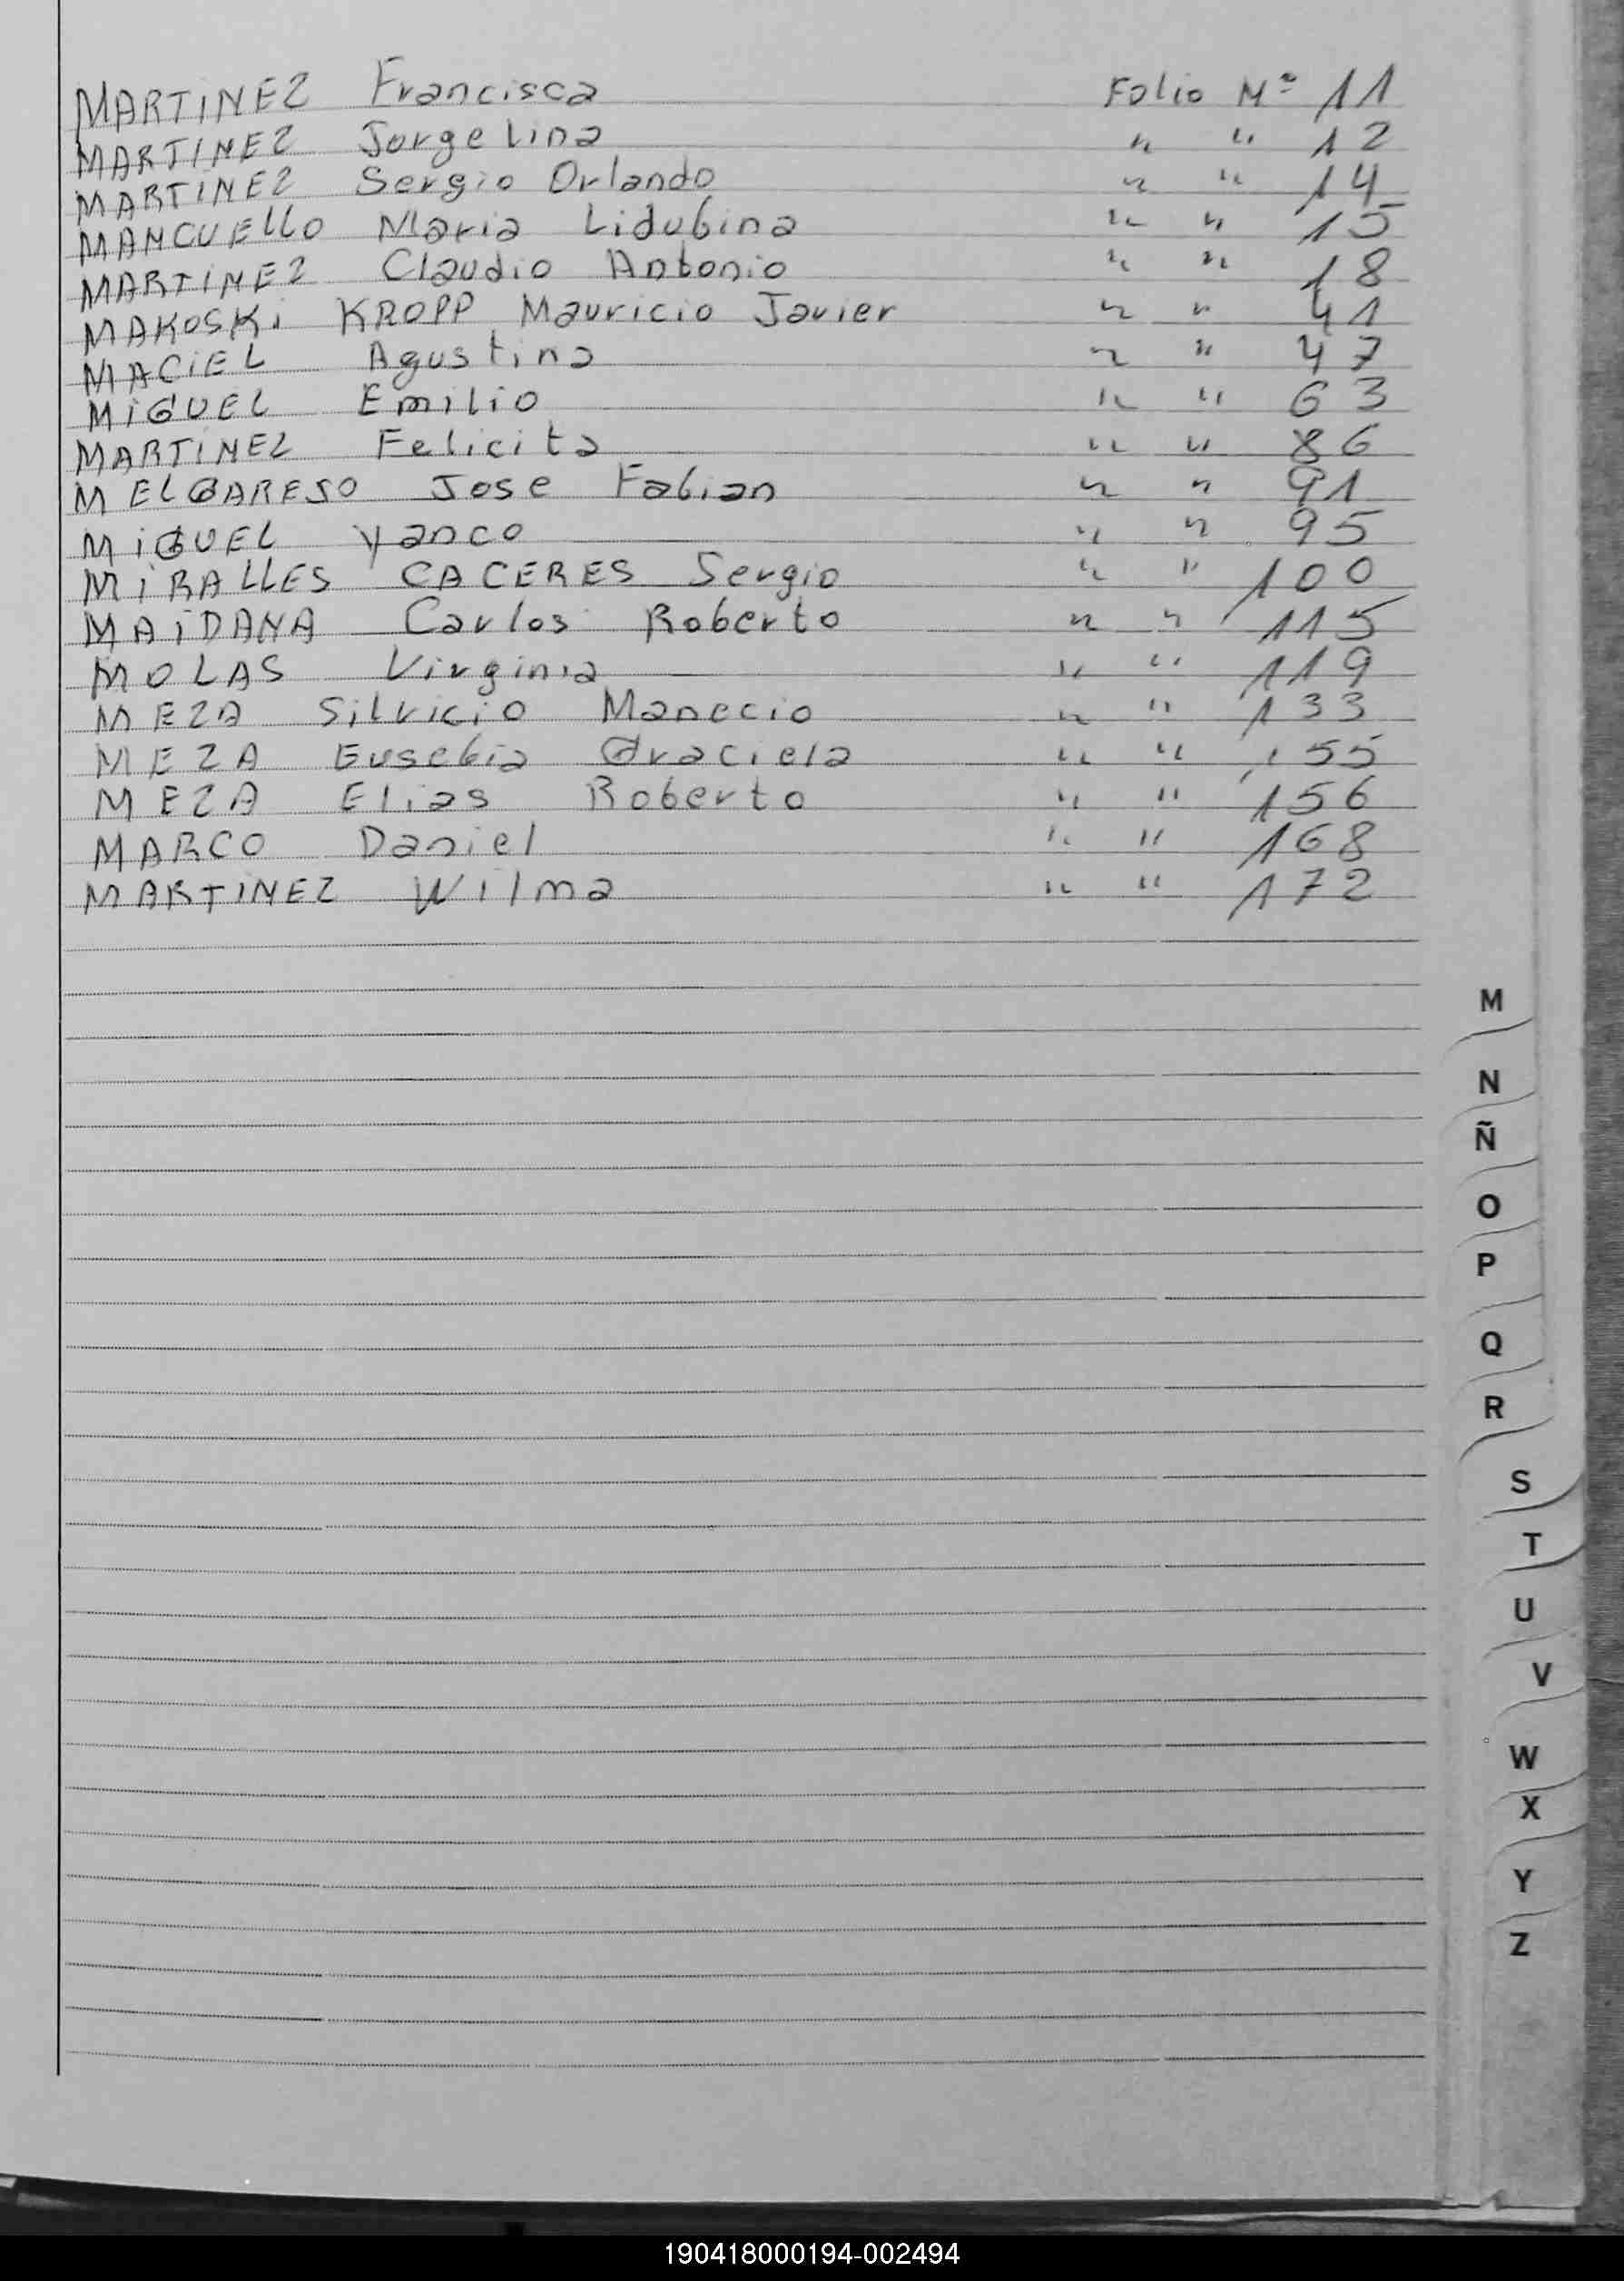 MARTINEZ Francisca Folio Nº 11
MARTINEZ Jorgelina " " 12
MARTINEZ Sergio Orlando " " 14
MANCUELLO Maria Lidubina " " 15
MARTINEZ Claudio Antonio " " 18
MAKOSKi KROPP Mauricio Javier " " 41
MACiEL Agustina " " 47
MiGUEL Emilio " " 63
MARTINEZ Felicita " " 86
MELGAREJO Jose Fabian " " 91
MiGUEL Yanco " " 95
MiRALLES CACERES Sergio " " 100
MAiDANA Carlos Roberto " " 115
MOLAS Virginia " " 119
MEZA Silvicio Manecio " " 133
MEZA Eusebia Graciela " " 155
MEZA Elias Roberto " " 156
MARCO Daniel " " 168
MARTINEZ Wilma " " 172
M
N
Ñ
O
P
Q
R
S
T
U
V
W
X
Y
Z
190418000194-002494